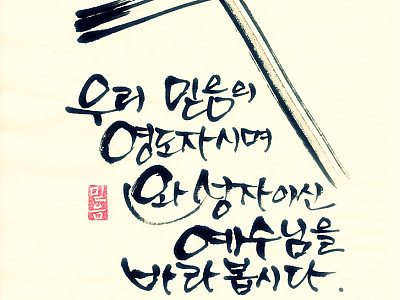 우리 믿음의
영도자시며
완성자이신
예수님을
바라봅시다.